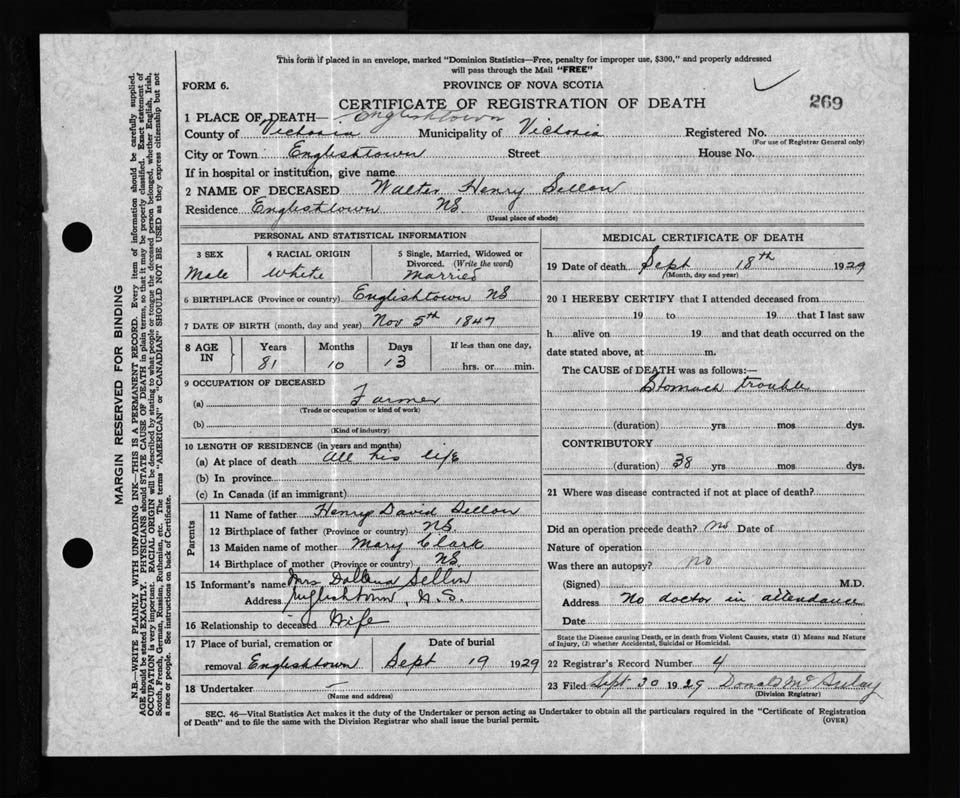 This form if placed in an envelope, marked "Dominion Statistics—Free, penalty for improper use, $300," and properly addressed
will pass through the Mail "FREE"
FORM 6.
PROVINCE OF NOVA SCOTIA
CERTIFICATE OF REGISTRATION OF DEATH
269
1 PLACE OF DEATH— Englishtown
County of Victoria Municipality of Victoria Registered No.
(For use of Registrar General only)
City or Town Englishtown Street House No.
If in hospital or institution, give name
2 NAME OF DECEASED Walter Henry Sellon
Residence Englishtown NS.
(Usual place of abode)
PERSONAL AND STATISTICAL INFORMATION
3 SEX 4 RACIAL ORIGIN 5 Single, Married, Widowed or Divorced. (Write the word)
Male White Married
6 BIRTHPLACE (Province or country) Englishtown NS
7 DATE OF BIRTH (month, day and year) Nov 5th 1847
8 AGE IN Years Months Days If less than one day,
81 10 13 hrs. or min.
9 OCCUPATION OF DECEASED
(a) Farmer
(Trade or occupation or kind of work)
(b)
(Kind of industry)
10 LENGTH OF RESIDENCE (in years and months)
(a) At place of death All his life
(b) In province
(c) In Canada (if an immigrant)
Parents
11 Name of father Henry David Sellon
12 Birthplace of father (Province or country) NS.
13 Maiden name of mother Mary Clark
14 Birthplace of mother (Province or country) NS.
15 Informant's name Mrs Sellon
Address Englishtown, N.S.
16 Relationship to deceased Wife
17 Place of burial, cremation or Date of burial
removal Englishtown Sept 19 1929
18 Undertaker —
(Name and address)
MEDICAL CERTIFICATE OF DEATH
19 Date of death Sept 18th 1929
(Month, day and year)
20 I HEREBY CERTIFY that I attended deceased from
19 to 19 that I last saw
h alive on 19 and that death occurred on the
date stated above, at m.
The CAUSE of DEATH was as follows:—
Stomach trouble
(duration) yrs mos dys.
CONTRIBUTORY
(duration) 38 yrs mos dys.
21 Where was disease contracted if not at place of death?
Did an operation precede death? no Date of
Nature of operation
Was there an autopsy? no
(Signed) M.D.
Address No doctor in attendance
Date
State the Disease causing Death, or in death from Violent Causes, state (1) Means and Nature
of Injury, (2) whether Accidental, Suicidal or Homicidal.
22 Registrar's Record Number 4
23 Filed Sept 30 1929 Donald McAulay
(Division Registrar)
SEC. 46—Vital Statistics Act makes it the duty of the Undertaker or person acting as Undertaker to obtain all the particulars required in the "Certificate of Registration
of Death" and to file the same with the Division Registrar who shall issue the burial permit.
(OVER)
MARGIN RESERVED FOR BINDING
N.B.—WRITE PLAINLY WITH UNFADING INK—THIS IS A PERMANENT RECORD. Every item of information should be carefully supplied.
AGE should be stated EXACTLY. PHYSICIANS should STATE CAUSE OF DEATH in plain terms, so that it may be properly classified. Exact statement of
OCCUPATION is very important. RACIAL ORIGIN will be described by stating to what people or tongue the deceased person belonged, whether English, Irish,
Scotch, French, German, Russian, Ruthenian, etc. The terms "AMERICAN" or "CANADIAN" SHOULD NOT BE USED as they express citizenship but not
a race or people. See instructions on back of Certificate.